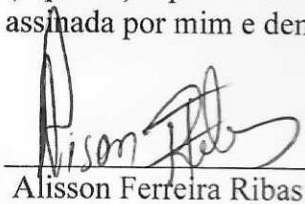 assinada por mim e den
Alisson Ferreira Ribas